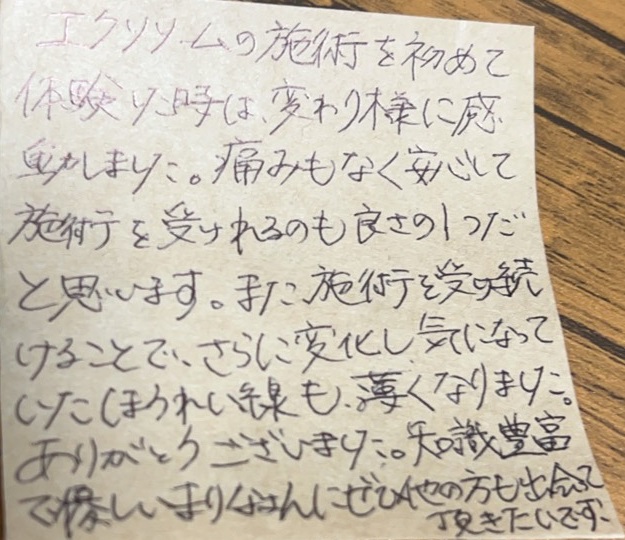 エクソソームの施術を初めて
体験した時は、変わり様に感
動しました。痛みもなく安心して
施術を受けれるのも良さの1つだ
と思います。また、施術を受け続
けることで、さらに変化し気になって
いたほうれい線も、薄くなりました。
ありがとうございました。知識豊富
で優しいまりなさんにぜひ他の方も出会って
頂きたいです。